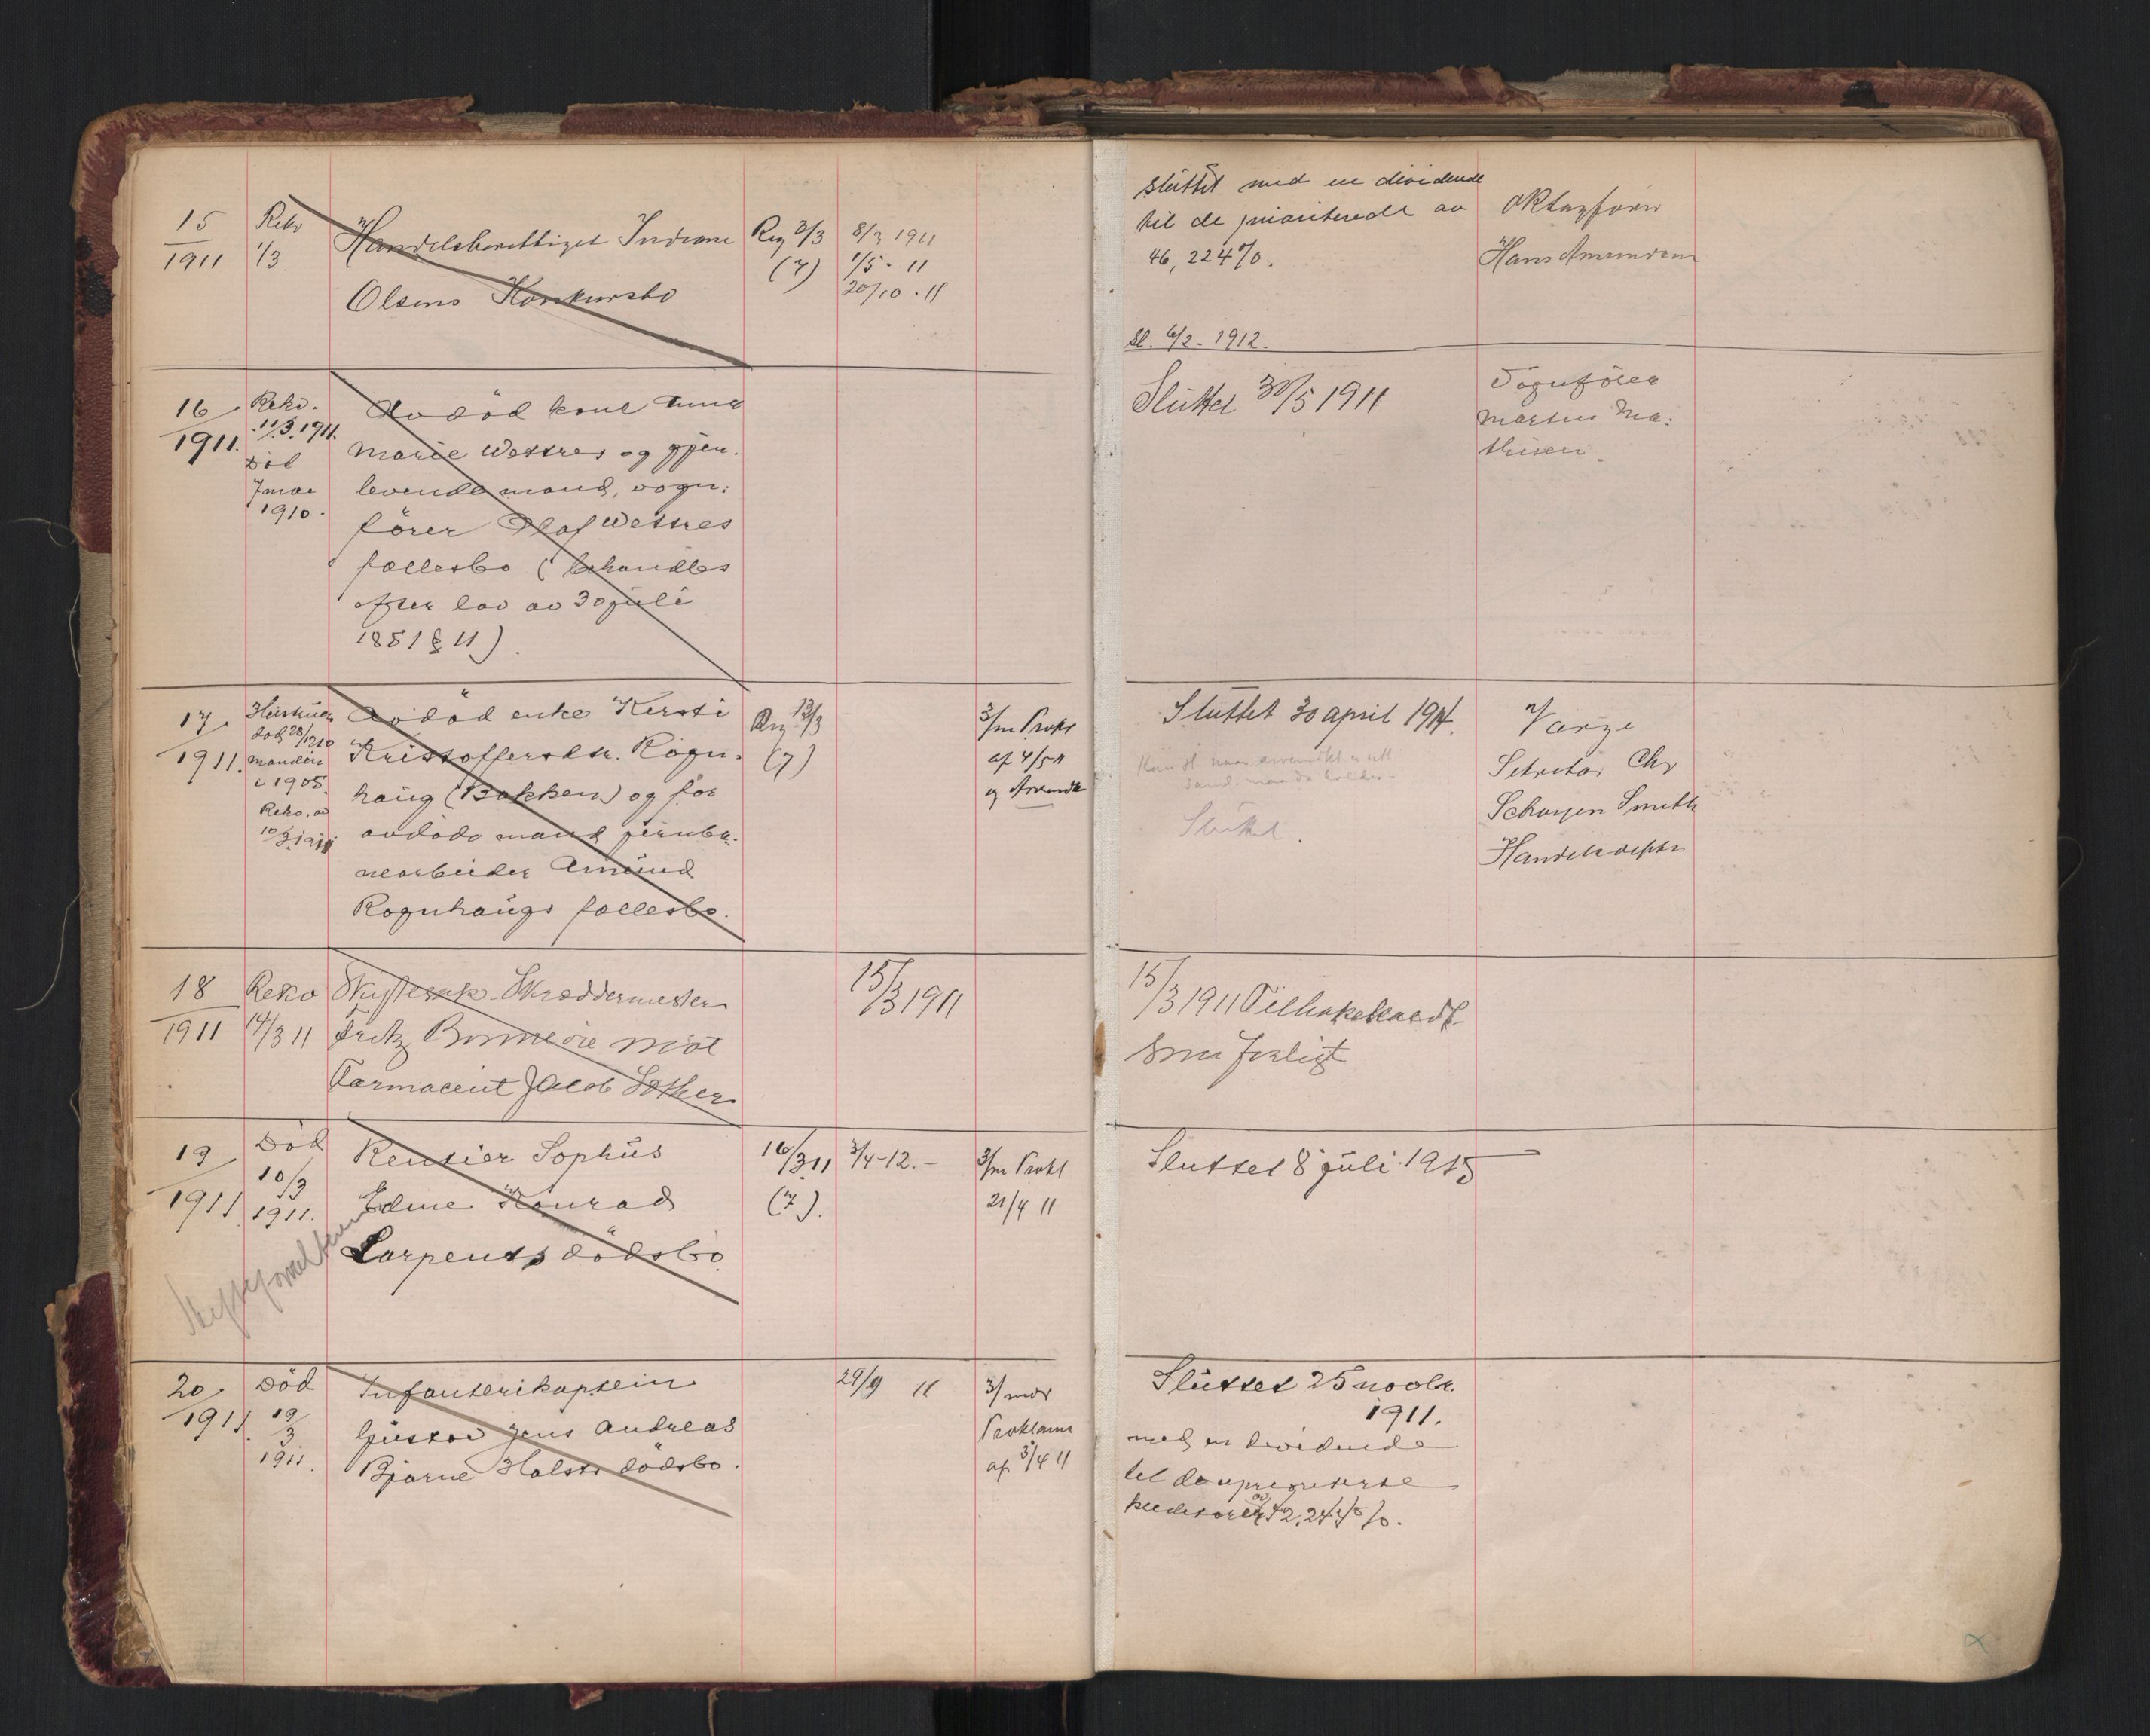 15
1911
Rekv
1/3
Handelsberettiget Indiane
Olsens Konkursbo
Reg 2/3
(7)
8/3 1911
1/5 - 11
20/10 - 11
sluttet med en dividende
til de prioriterede av
46,224 %.
sl. 6/2 - 1912.
Hans Amundsen
16
1911.
Rekv.
11/3. 1911.
Död
7 mai
1910.
Avdöd kone Anna
Marie Wettres og gjen-
levende mand, vogn-
förer Olaf Wettres
fællesbo (behandles
efter lov av 30 juli
1851 § 11).
Sluttet 30/5 1911
Vognförer
Martin Ma-
thisen.
17
1911.
död 28/12 10
manden
i 1905.
Rekv. av
10/3 1911
Avdöd enke Kersti
Kristoffersdtr. Rogn-
haug (Bakken) og for
avdöde mand jernba-
nearbeider Amund
Rognhaugs fællesbo.
Reg 13/3
(7)
3/m Prokl
af 4/5 11
Sluttet 30 april 1914.
Sluttet.
Værge
Sekretær Chr
Schouen Smith
Handelsdept.
18
1911
Rekv
14/3 11
Skræddermester
Fritz Bonnevie mot
Farmaceut Jacob Sother
15/3 1911
15/3 1911 Tilbakekaldt
som forligt
19
1911
Död
10/3
1911.
Rentier Sophus
Edme Konrad
Larpents dödsbo
16/3 11
(7).
3/4 - 12. -
3/m Prokl
21/4 11
Sluttet 8 juli 1915
20
1911
Död
19/3
1911.
Infanterikaptein
Gustav Jens Andreas
Bjarne Holsts dödsbo.
29/9 11
3/mdr
Proklama
af 3/4 11
Sluttet 25 novbr.
1911.
med en dividende
til de uprioriterte
kreditorer av 42,24 %.